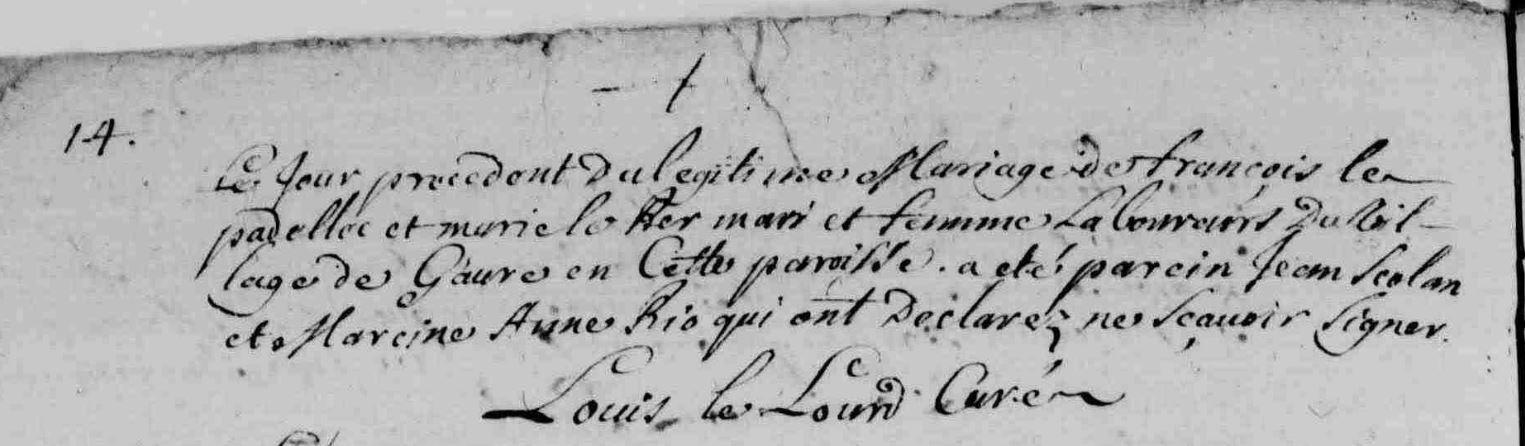 14.
Le Jour precedent du legitime Mariage de françois le
padelloc et marie le Her mari et femme Laboureurs du vil-
lage de Gaure en Cette paroisse. a eté parein Jean Scolan
et Mareine Anne Rio qui ont Declaréz ne Sçavoir Signer.
Louis le Lourd Curé